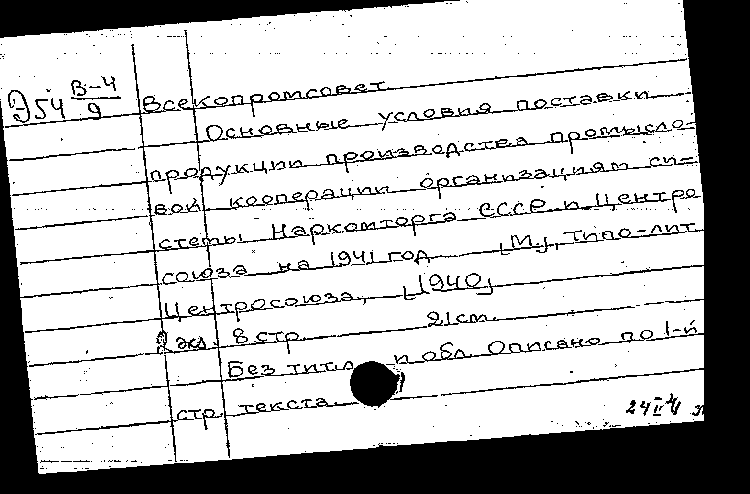 Э54 В-4/9 Всекопромсовет
Основные условия поставки
продукции производства промысло-
вой кооперации организациям си-
стемы Наркомторга СССР и Центро
союза на 1941 год [М], Типо-лит
Центросоюза, [1940]
2 экз. 8 стр. 21 см.
Без тит.л. и обл. Описано по 1-й
стр. текста